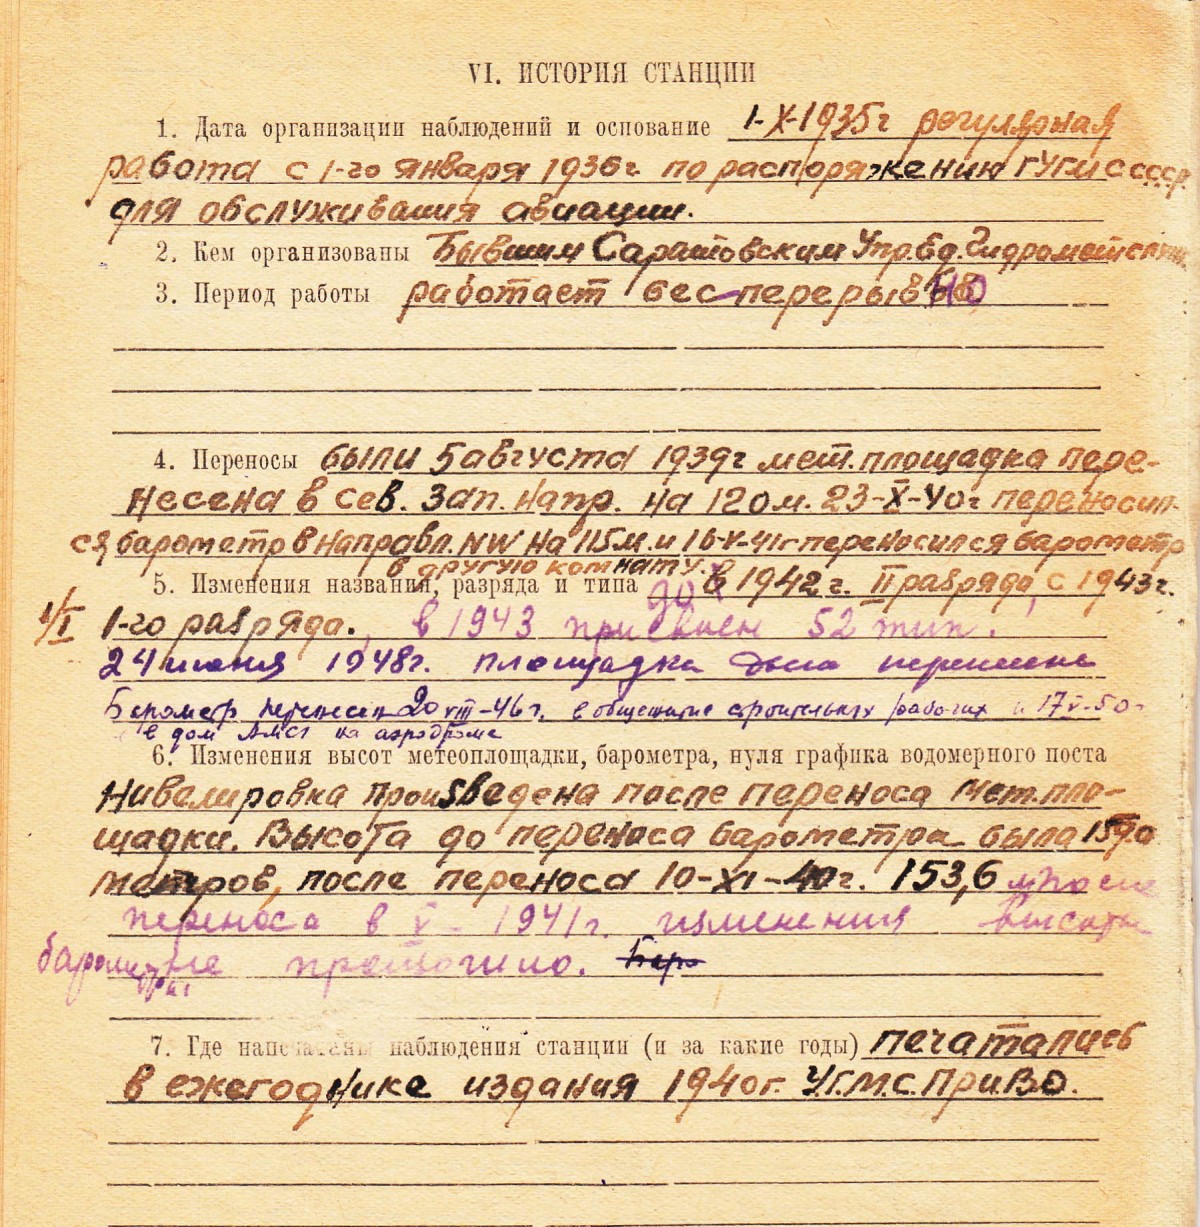 VI. ИСТОРИЯ СТАНЦИИ
1. Дата организации наблюдений и основание 1-X-1935г регулярная
работа с 1-го января 1936г. по распоряжению ГУГМС СССР
для обслуживания авиации.
2. Кем организованы Бывшим Саратовским Упр. Ед. Гидрометслужб.
3. Период работы работает бес-перерывно
4. Переносы были 5 августа 1939г мет. площадка пере-
несена в сев. зап. напр. на 120м. 23-X-40г переносил-
ся барометр в направл. NW на 115м. и 16-V-41г переносился барометр
в другую комнату.
5. Изменения названия, разряда и типа до в 1942г. II разряда, с 1943г.
1/I 1-го разряда., в 1943 присвоен 52 тип.
24 июня 1948г. площадка была перенесена
Барометр перенесен 20 VIII-46г. в общежитие строительных рабочих и 17 V-50г
в дом АМСГ на аэродроме
6. Изменения высот метеоплощадки, барометра, нуля графика водомерного поста
Нивелировка произведена после переноса мет. пло-
щадки. Высота до переноса барометра была
метров, после переноса 10-XI-40г. 153,6 м после
переноса в V - 1941г. изменения высоты
барометра не произошло. Баро
7. Где напечатаны наблюдения станции (и за какие годы) печатались
в ежегоднике издания 1940г. У.Г.М.С. ПриВО.